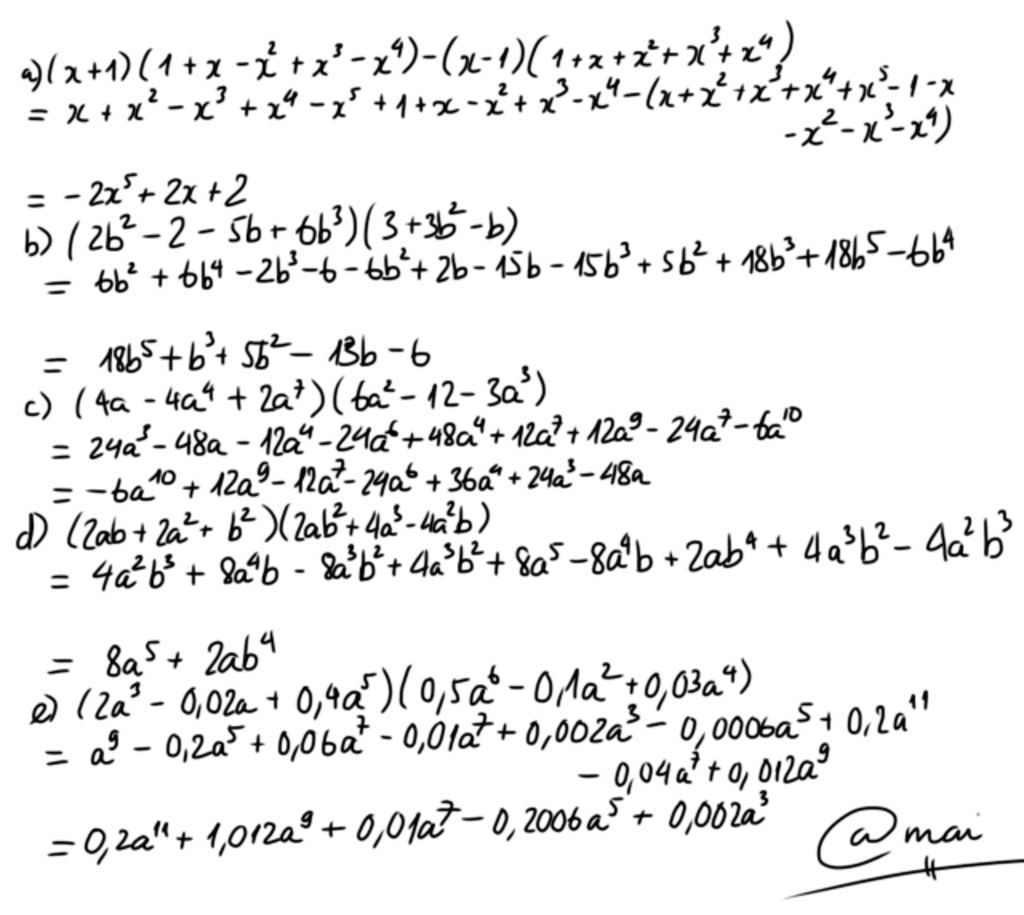 a) (x+1)(1+x-x²+x³-x⁴)-(x-1)(1+x+x²+x³+x⁴)
= x+x²-x³+x⁴-x⁵+1+x-x²+x³-x⁴-(x+x²+x³+x⁴+x⁵-1-x
-x²-x³-x⁴)
= -2x⁵+2x+2
b) (2b²-2-5b+6b³)(3+3b²-b)
= 6b²+6b⁴-2b³-6-6b²+2b-15b-15b³+5b²+18b³+18b⁵-6b⁴
= 18b⁵+b³+5b²-13b-6
c) (4a-4a⁴+2a⁷)(6a²-12-3a³)
= 24a³-48a-12a⁴-24a⁶+48a⁴+12a⁷+12a⁹-24a⁷-6a¹⁰
= -6a¹⁰+12a⁹-12a⁷-24a⁶+36a⁴+24a³-48a
d) (2ab+2a²+b²)(2ab²+4a³-4a²b)
= 4a²b³+8a⁴b-8a³b²+4a³b²+8a⁵-8a⁴b+2ab⁴+4a³b²-4a²b³
= 8a⁵+2ab⁴
e) (2a³-0,02a+0,4a⁵)(0,5a⁶-0,1a²+0,03a⁴)
= a⁹-0,2a⁵+0,06a⁷-0,01a⁷+0,002a³-0,0006a⁵+0,2a¹¹
-0,04a⁷+0,012a⁹
= 0,2a¹¹+1,012a⁹+0,01a⁷-0,2006a⁵+0,002a³
@mai